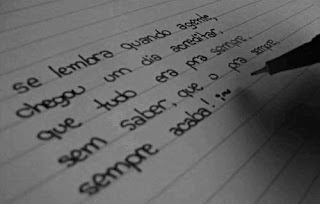 se lembra quando agente,
chegou um dia acreditar.
que tudo era pra sempre,
sem saber, que o pra sempre,
sempre acaba!...